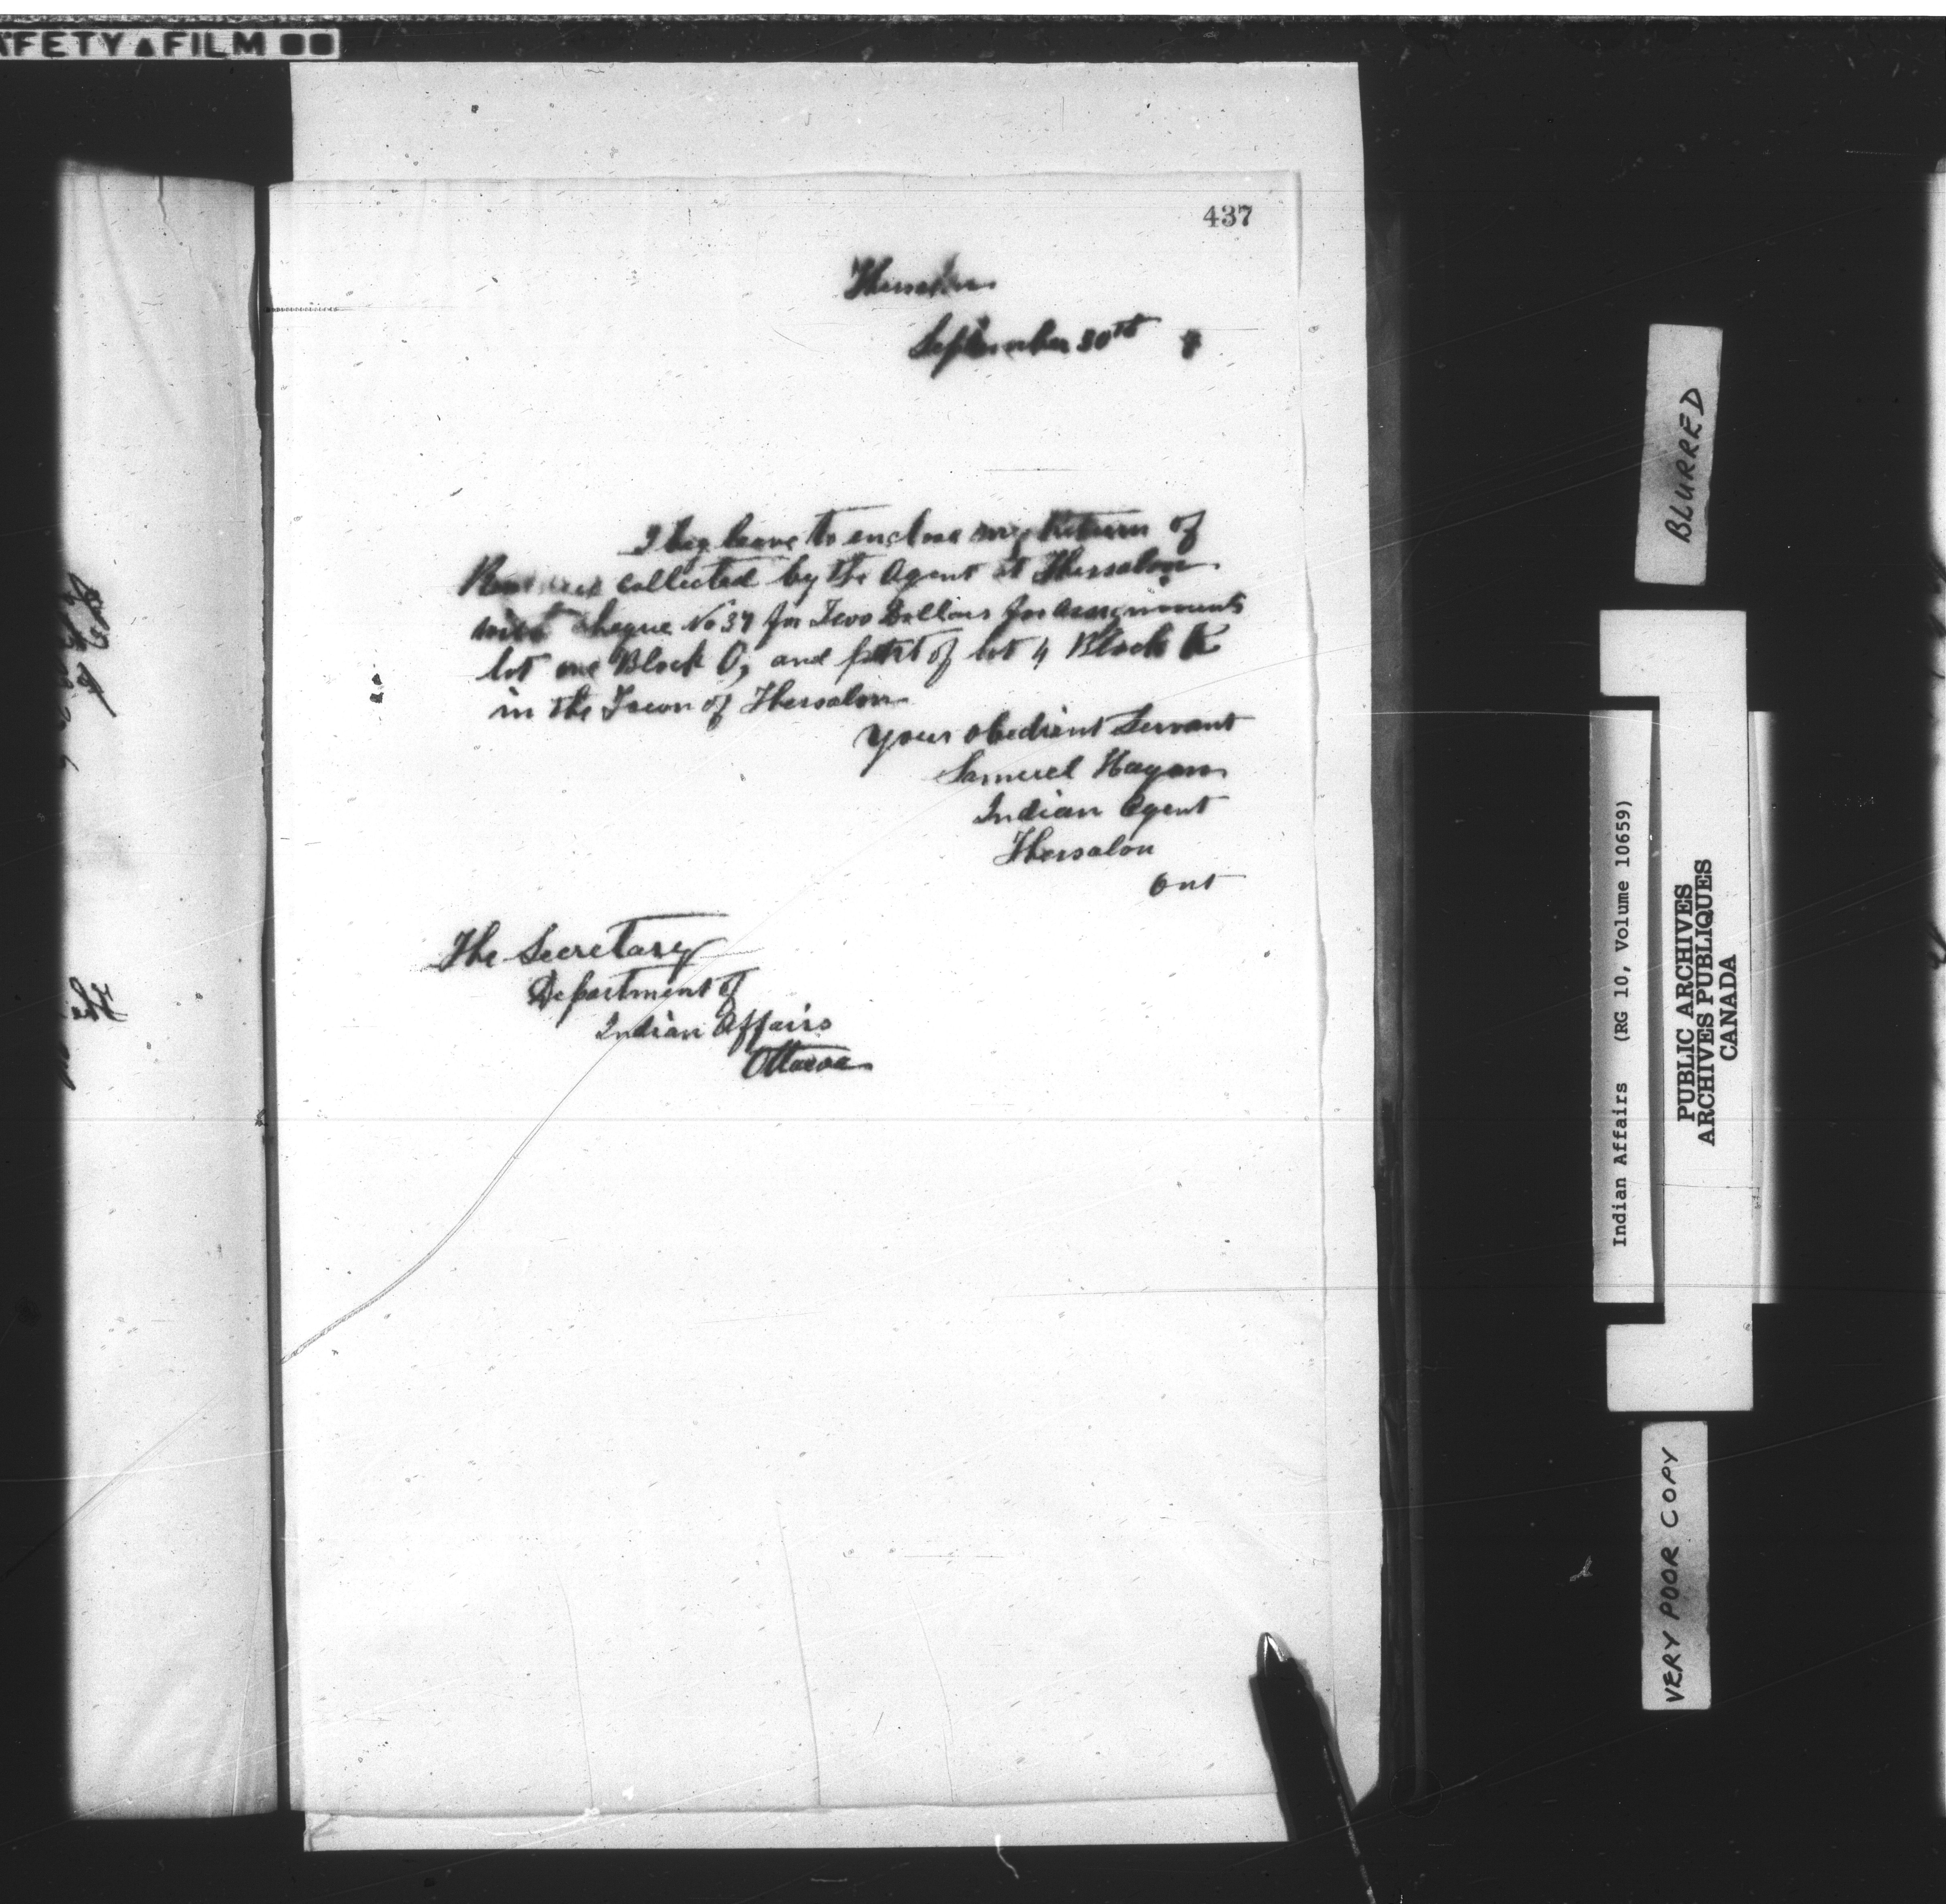 AFETY▲FILM ●●
437
Thessalon
September 30th 7
I beg leave to enclose my Return of
collected by the Agent at Thessalon
with cheque No 37 for Two Dollars for assignments
lot one Block O, and part of lot 4 Block K
in the Town of Thessalon
Your obedient Servant
Samuel Hagan
Indian Agent
Thessalon
Ont
The Secretary
Department of
Indian Affairs
Ottawa
BLURRED
Indian Affairs (RG 10, Volume 10659)
PUBLIC ARCHIVES
ARCHIVES PUBLIQUES
CANADA
VERY POOR COPY